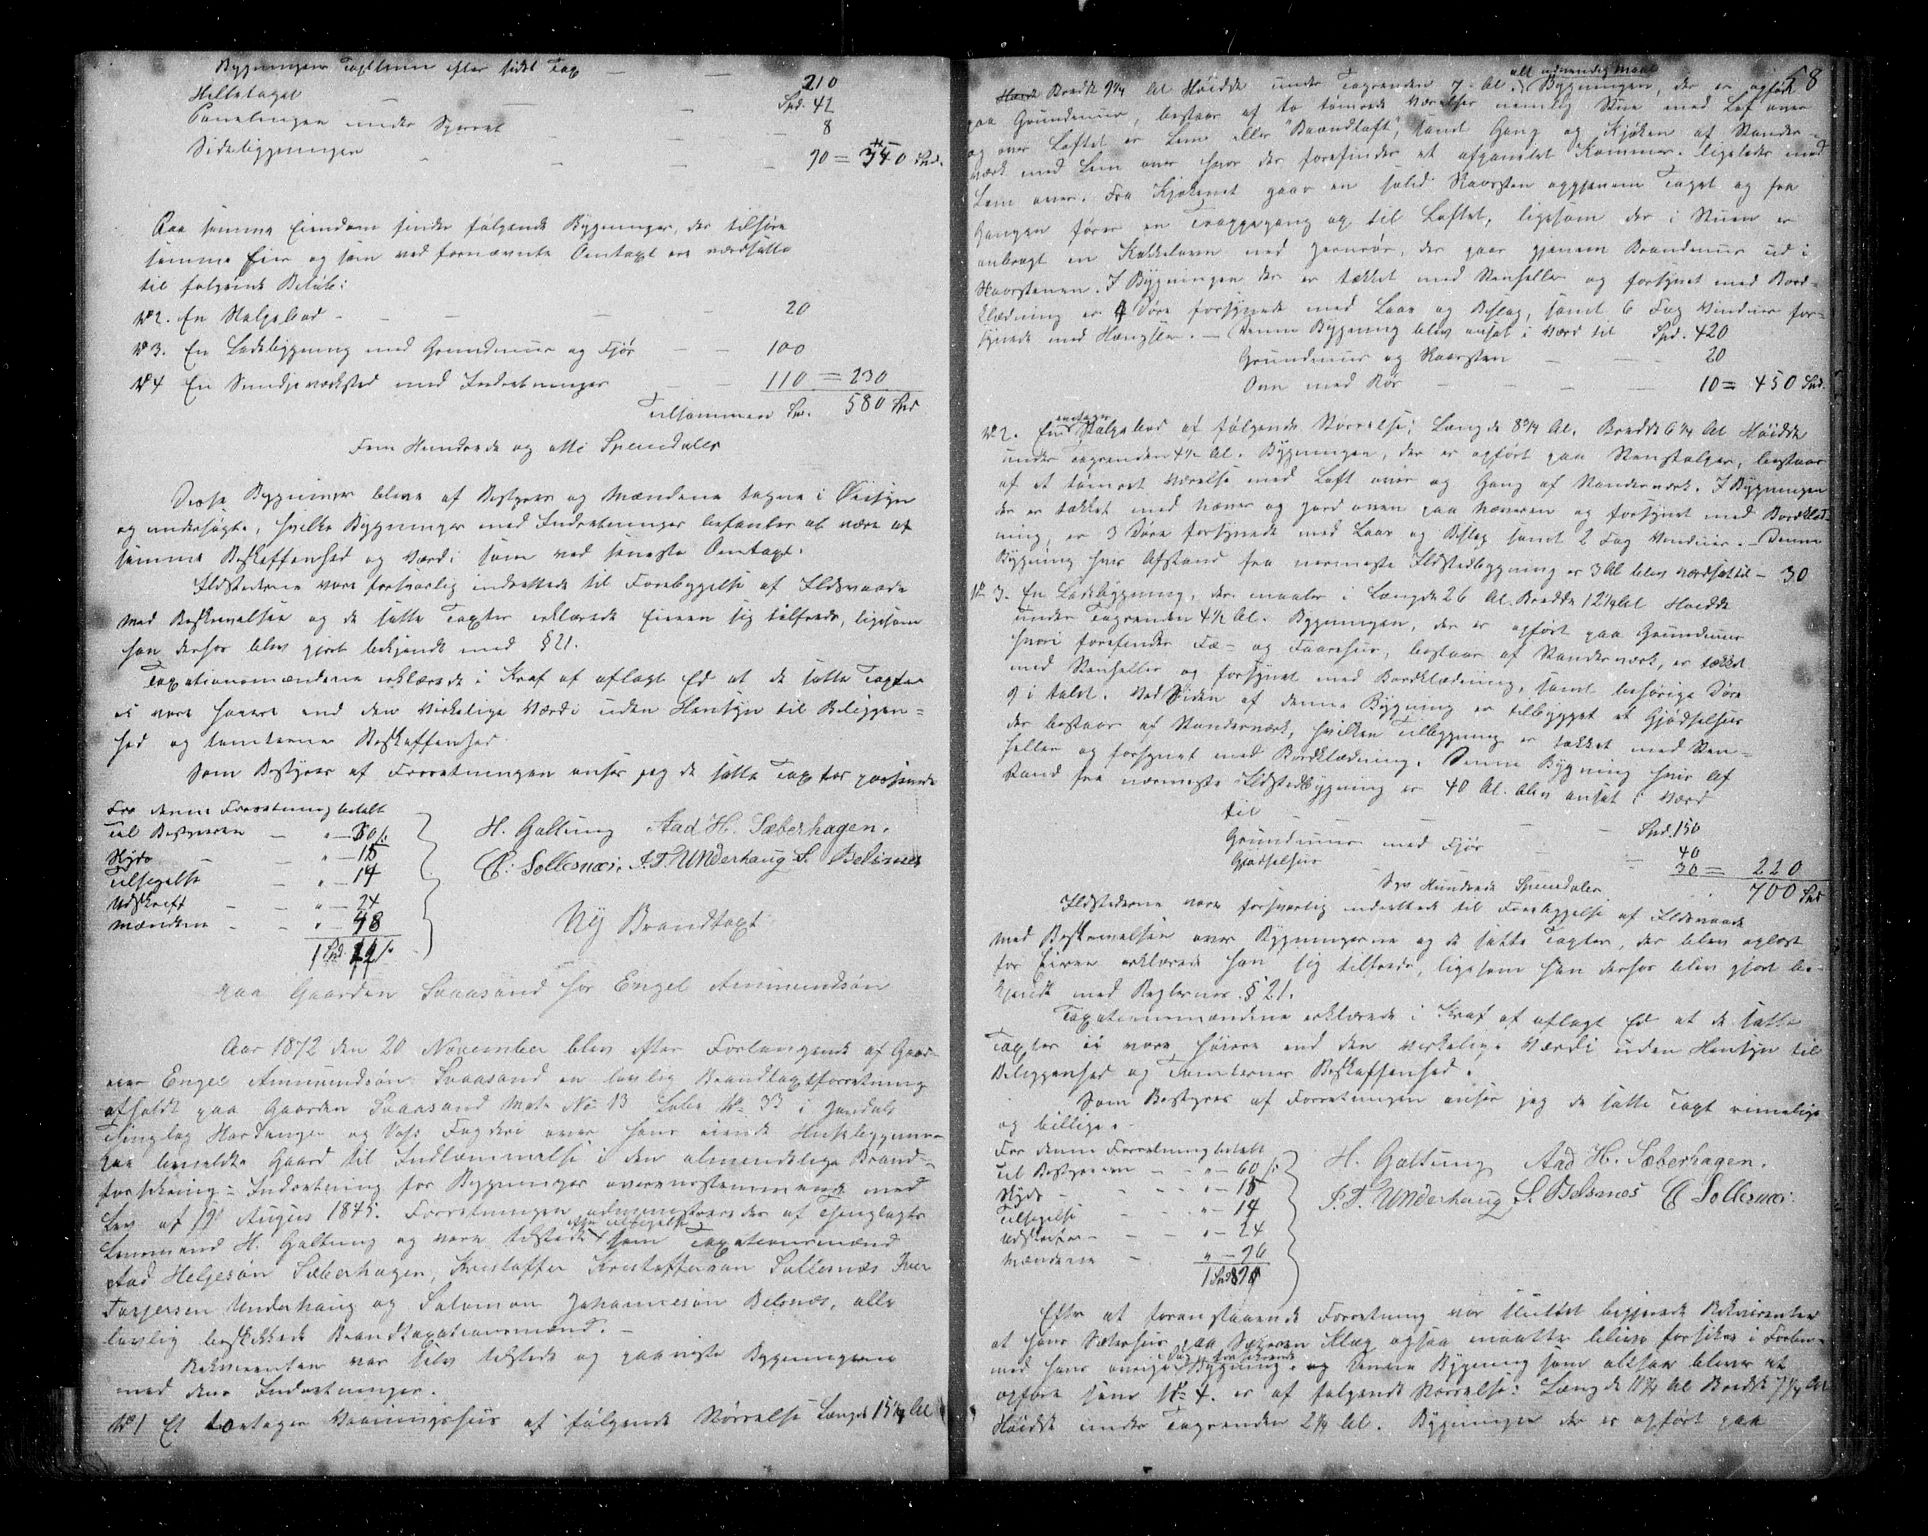 Bygningens Taxtsum efter sidst Tax — — 210
Helletaget — — — Spd. 42
Panelingen under Sperret — — 8
Sidebygningen — — — 90 = 350 Spd.
Paa samme Eiendom findes følgende Bygninger, der tilhøre
samme Eier og som ved fornævnte Omtaxt ere værdsatte
til følgende Beløb:
No 2. En Stolpebod — — — 20
No 3. En Ladebygning med Grundmuur og Fjøs — — 100
No 4 En Smedjeværksted med Indretninger — — 110 = 230
Tilsammen Spd. 580 Spd
Fem Hundrede og otti Speciedaler
Disse Bygninger bleve af Bestyrer og Mændene tagne i Øiesyn
og undersøgte, hvilke Bygninger med Indretninger befandtes at være af
samme Beskaffenhed og Værdi som ved seneste Omtaxt.
Ildstederne vare forsvarlig indrettede til Forebyggelse af Ildsvaade
Med Beskrivelsen og de satte Taxter erklærede Eieren sig tilfreds, ligesom
han derhos blev gjort bekjendt med § 21.
Taxationsmændene erklærede i Kraft af aflagt Ed at de satte Taxter
ei vare høiere end den virkelige Værdi uden Hensyn til Beliggen-
hed og tomternes Beskaffenhed.
Som Bestyrer af Forretningen anser jeg de satte Taxter passende
For denne Forretning betalt
Til Bestyreren — " — 30 s.
Skyds — " — 15
Tilsigelse — " — 14
Udskrift — " — 24
Mændene — " 48
1 Spd. 11 s
H. Galtung Aad H. Sæberhagen.
C. Sollesnæs. I. T. Underhaug S. Belsnæs
Ny Brandtaxt
paa Gaarden Svaasand hos Engel Ammundsøn
Aar 1872 den 20 November blev efter Forlangende af Gaard-
eier Engel Ammundsøn Svaasand en lovlig Brandtaxtforretning
afholdt paa Gaarden Svaasand Mats No 13 Løbe No 33 i Jondals
Tinglag Hardanger og Voss Fogderi over hans eiende Huusbygninger
paa bemeldte Gaard til Indlemmelse i den almindelige Brand-
forsikrings Indretning for Bygninger overensstemmende med
Lov af 19 August 1845. Forretningen administreredes af Tinglagets
Lensmand H. Galtung og vare tilstede efter tilsigelse som Taxationsmænd
Aad Helgesøn Sæberhagen, Kristoffer Kristoffersøn Sollesnæs Iver
Torjersen Underhaug og Salomon Johannesøn Belsnæs, alle
lovlig beskikkede Brandtaxationsmænd. —
Rekvirenten var selv tilstede og paaviste Bygningerne
med deres Indretninger.
No 1 Et toetages Vaaningshuus af følgende Størrelse Længde 15 1/4 Al
58
Bredde 9 1/4 Al Høidde under Tagrenden 7 Al. alt udvendig Maal Bygningen, der er opført
paa Grundmuur, bestaar af to tømrede Værelser nemlig Stue med Lof over
og over Loftet er Lem eller "Brandloft", samt Gang og Kjøken af Stander-
værk med Lem over hvor der forefindes et afpanelet Kammer ligeledes med
Lem over. Fra Kjøkenet gaar en solid Skorsten opgjennem Taget og fra
Gangen fører en Trappegang op til Loftet, ligesom der i Stuen er
anbragt en Kakkelovn med Jernrør, der gaar gjenem Brandmuur ud i
Skorstenen. I Bygningen der er tækket med Stenheller og forsynet med Bord-
klædning er 4 Døre forsynede med Laas og Beslag, samt 6 Fag Vinduer for-
synede med Hængsler. — Denne Bygning blev anset i Værd til Spd. 420
Grundmuur og Skorsten — — 20
Ovn med Rør — — — 10 = 450 Spd.
No 2. En eenetages Stolpebod af følgende Størrelse; Længde 8 3/4 Al. Bredde 6 1/4 Al Høidde
under Tagrenden 4 1/2 Al. Bygningen, der er opført paa Stenstolper, bestaar
af et tømret Værelse med Loft over og Gang af Standerværk. I Bygningen
der er tækket med Næver og Jord oven paa Næveren og forsynet med Bordklæd-
ning, er 3 Døre forsynede med Laas og Beslag samt 2 Fag Vinduer. — Denne
Bygning hvis Afstand fra nærmeste Ildstedbygning er 3 Al blev værdsat til — 30
No 3. En Ladebygning, der maaler i Længde 26 Al. Bredde 12 1/4 Al Høidde
under Tagrenden 4 1/2 Al. Bygningen, der er opført paa Grundmuur
hvori forefindes Fæ- og Faarehuus, bestaar af Standerværk, er tækket
med Stenheller og forsynet med Bordklædning, samt behørige Døre
9 i tallet. Ved Siden af denne Bygning er tilbygget et Gjødselhuus
der bestaar af Standerværk, hvilken Tilbygning er tækket med Sten-
heller og forsynet med Bordklædning. Denne Bygning hvis Af
stand fra nærmeste Ildstedbygning er 40 Al. blev anset i Værd
til Spd. 150
Grundmuur med Fjøs — — 40
Gjødselhuus — — 30 = 220
Syv Hundrede Speciedaler 700 Spd
Ildstederne vare forsvarlig indrettede til Forebyggelse af Ildsvaade
Med Beskrivelsen over Bygningerne og de satte Taxter, der blev oplæst
for Eieren erklærede han sig tilfreds, ligesom han derhos blev gjort be-
kjendt med Reglernes § 21.
Taxationsmændene erklærede i Kraf af aflagt Ed at de satte
Taxter ei vare høiere end den virkelige Værdi uden Hensyn til
Beliggenhed og Tomternes Beskaffenhed.
Som Bestyrer af Forretningen anser jeg de satte Taxt rimelige
og billige.
For denne Forretning betalt
Til Bestyreren — " — 60 s.
Skyds — " — 15
Tilsigelse — " — 14
Udskriften — " — 24
Mændene — " — 96
1 Spd 89
H. Galtung Aad H. Sæberhagen.
I. T. Underhaug S. Belsnæs C Sollesnæs.
Efter at foranstaaende Forretning var sluttet begjærede Rekvirenten
at hans Sæterhuus paa Sæteren Klæg ogsaa maatte blive forsikret i Forbin-
med hans øvrige i Dag forsikrede Bygninger og denne Bygning som altsaa bliver at
opføre som No 4. er af følgende Størrelse: Længde 11 3/4 Al Bredde 7 1/4 Al
Høidde under Tagrenden 2 3/4 Al. Bygningen der er opført paa